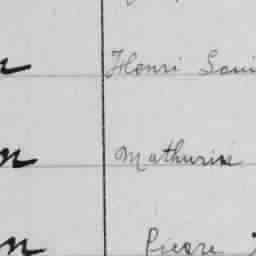 Henri Loui
Mathurin
Pierre